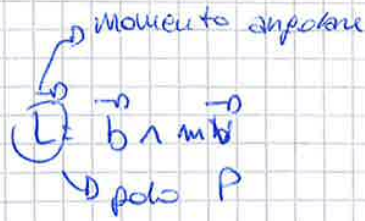 momento angolare
L = b ∧ mv
polo P